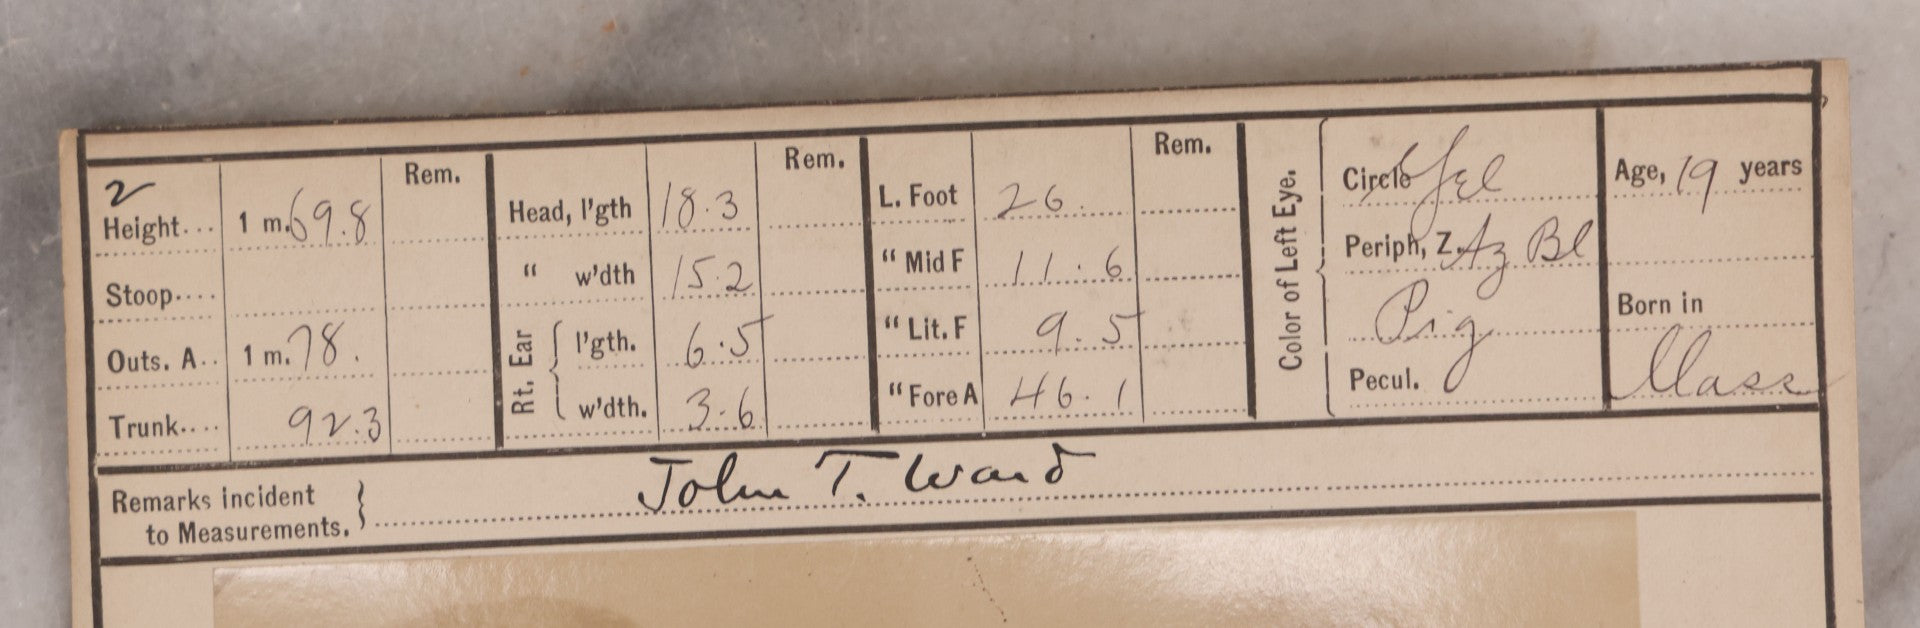 2
Height... 1 m.69.8 Rem.
Stoop....
Outs. A.. 1 m.78.
Trunk.... 92.3
Head, l'gth 18.3 Rem.
" w'dth 15.2
Rt. Ear { l'gth. 6.5
w'dth. 3.6
L. Foot 26. Rem.
" Mid F 11.6
" Lit. F 9.5
" Fore A 46.1
Color of Left Eye.
Circle Yel
Periph, Z. Az Bl
Pig
Pecul.
Age, 19 years
Born in
Mass
Remarks incident
to Measurements. } John T. Ward